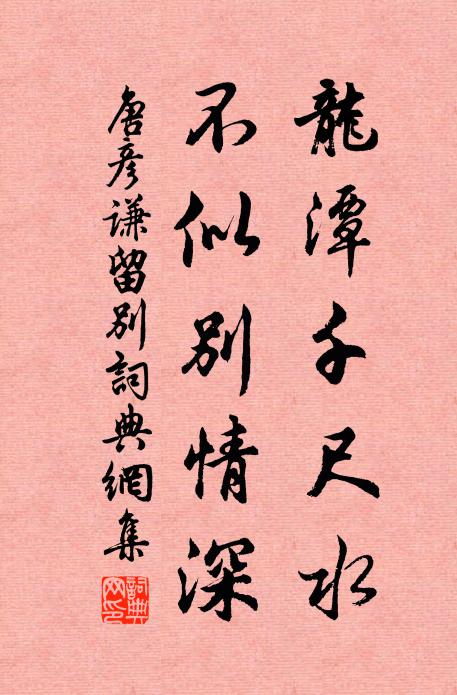 龍潭千尺水
不似別情深
唐彥謙留別詞典網集
詞典
网印